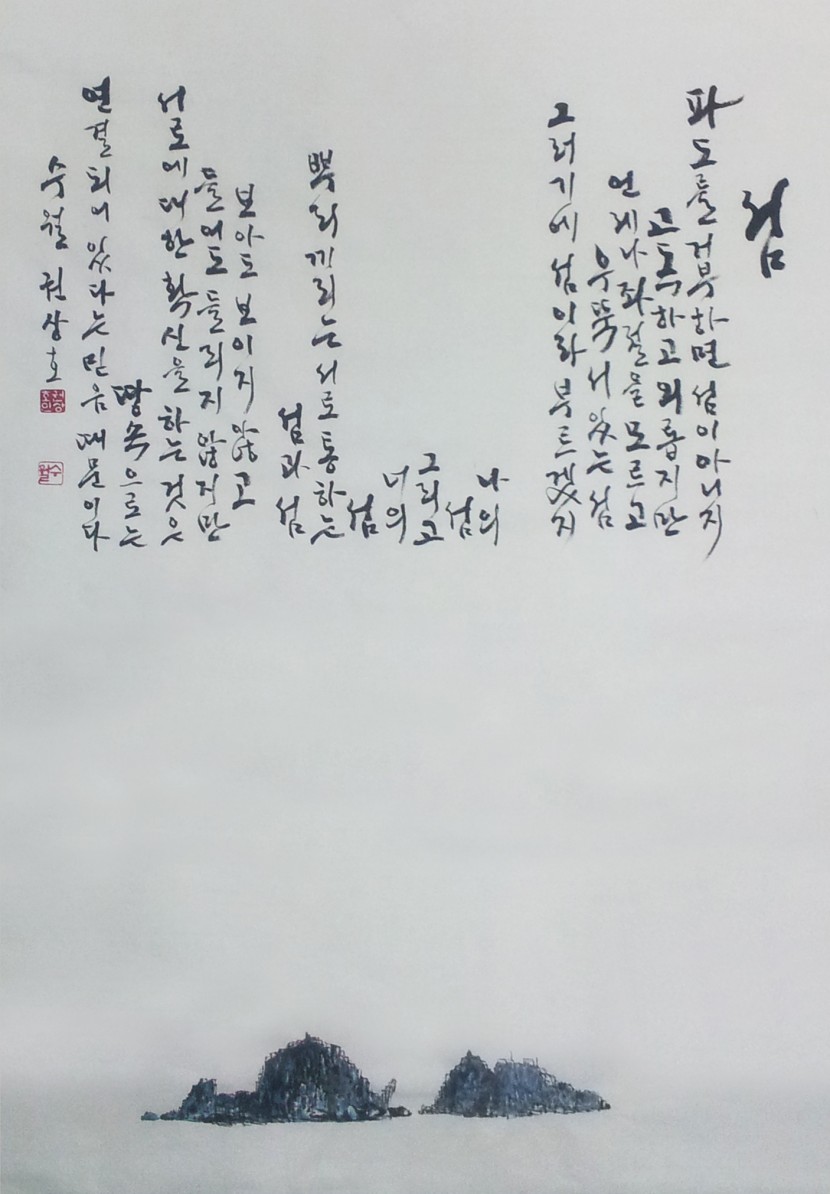 섬
파도를 거부하면 섬이 아니지
고독하고 외롭지만
언제나 좌절을 모르고
우뚝 서 있는 섬
그러기에 섬이라 부르겠지
나의
섬
그리고
너의
섬
뿌리끼리는 서로 통하는
섬과 섬
보아도 보이지 않고
들어도 들리지 않지만
서로에 대한 확신을 하는 것은
땅속으로는
연결되어 있다는 믿음 때문이다
수월 권상호
수월